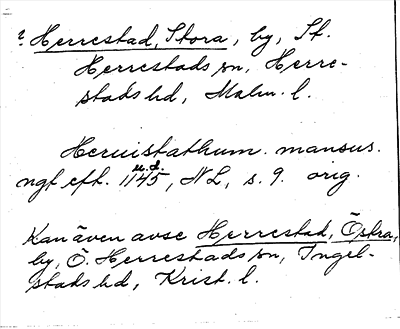 ? Herrestad, Stora, by, St.
Herrestads sn, Herre-
stads hd, Malm. l.
Heruistathum. mansus.
u. d.
ngt eft. 1145, NL, s. 9. orig.
Kan även avse Herrestad, Östra,
by, Ö. Herrestads sn, Ingel-
stads hd, Krist. l.